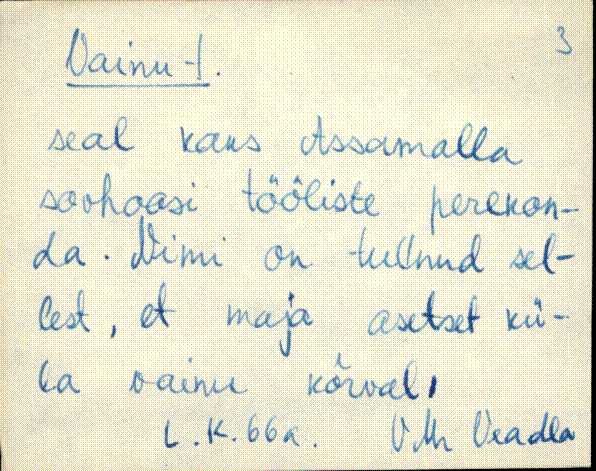 3
Vainu-t.
seal kaks Assamalla
sovhoosi tööliste perekon-
da. Nimi on tulnud sel-
lest, et maja asetset kü-
la vainu kõrval,
L.K. 66a. V.Mr Veadla